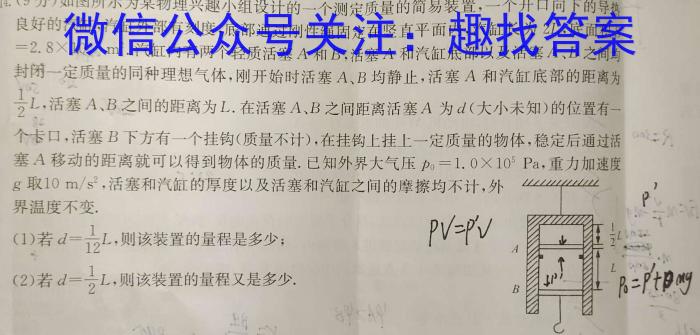 (9分)如图所示为某物理兴趣小组设计的一个测定质量的简易装置,一个开口向下的导热
良好的
微信公众号关注：趣找答案
=2.8×
封闭一定质量的同种理想气体,刚开始时活塞A、B均静止,活塞A和汽缸底部的距离为
1/2 L,活塞A、B之间的距离为L.在活塞A、B之间距离活塞A为d(大小未知)的位置有一
个卡口,活塞B下方有一个挂钩(质量不计),在挂钩上挂上一定质量的物体,稳定后通过活
塞A移动的距离就可以得到物体的质量.已知外界大气压p₀=1.0×10⁵ Pa,重力加速度
g取10 m/s²,活塞和汽缸的厚度以及活塞和汽缸之间的摩擦均不计,外
界温度不变.
(1)若d=1/12 L,则该装置的量程是多少;
(2)若d=1/2 L,则该装置的量程又是多少.
PV=P'V
P'
A
B
1/2 L
L
P₀=P'+mg